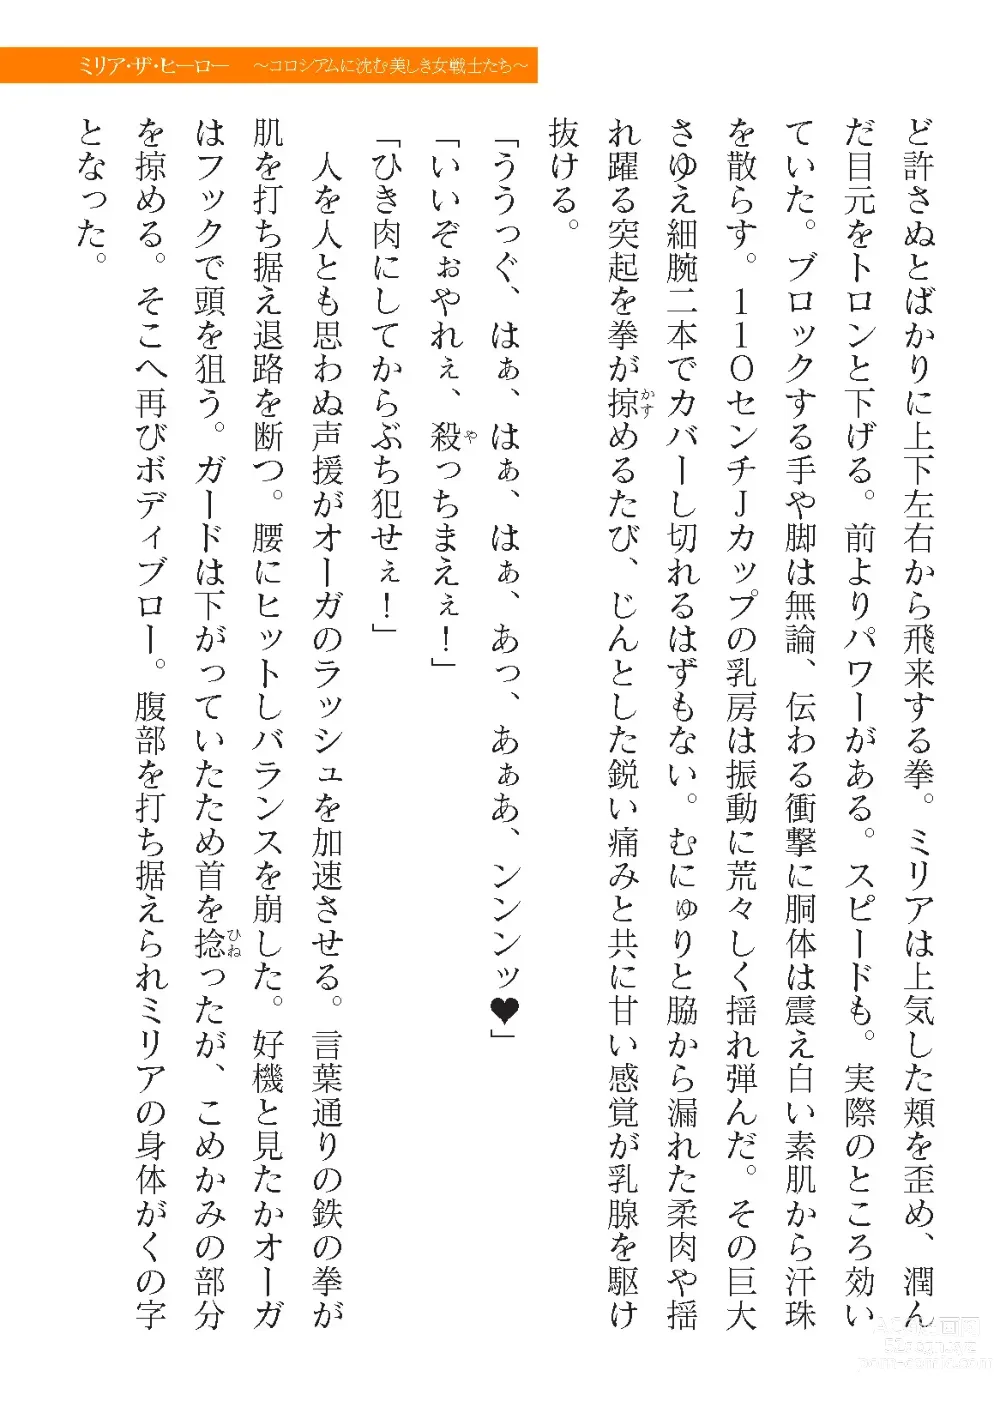 ミリア・ザ・ヒーロー　～コロシアムに沈む美しき女戦士たち～
ど許さぬとばかりに上下左右から飛来する拳。ミリアは上気した頬を歪め、潤ん
だ目元をトロンと下げる。前よりパワーがある。スピードも。実際のところ効い
ていた。ブロックする手や脚は無論、伝わる衝撃に胴体は震え白い素肌から汗珠
を散らす。１１０センチＪカップの乳房は振動に荒々しく揺れ弾んだ。その巨大
さゆえ細腕二本でカバーし切れるはずもない。むにゅりと脇から漏れた柔肉や揺
れ躍る突起を拳が掠かすめるたび、じんとした鋭い痛みと共に甘い感覚が乳腺を駆け
抜ける。
「ううっぐ、はぁ、はぁ、はぁ、あっ、あぁあ、ンンンッ♥」
「いいぞぉやれぇ、殺やっちまえぇ！」
「ひき肉にしてからぶち犯せぇ！」
　人を人とも思わぬ声援がオーガのラッシュを加速させる。言葉通りの鉄の拳が
肌を打ち据え退路を断つ。腰にヒットしバランスを崩した。好機と見たかオーガ
はフックで頭を狙う。ガードは下がっていたため首を捻ひねったが、こめかみの部分
を掠める。そこへ再びボディブロー。腹部を打ち据えられミリアの身体がくの字
となった。